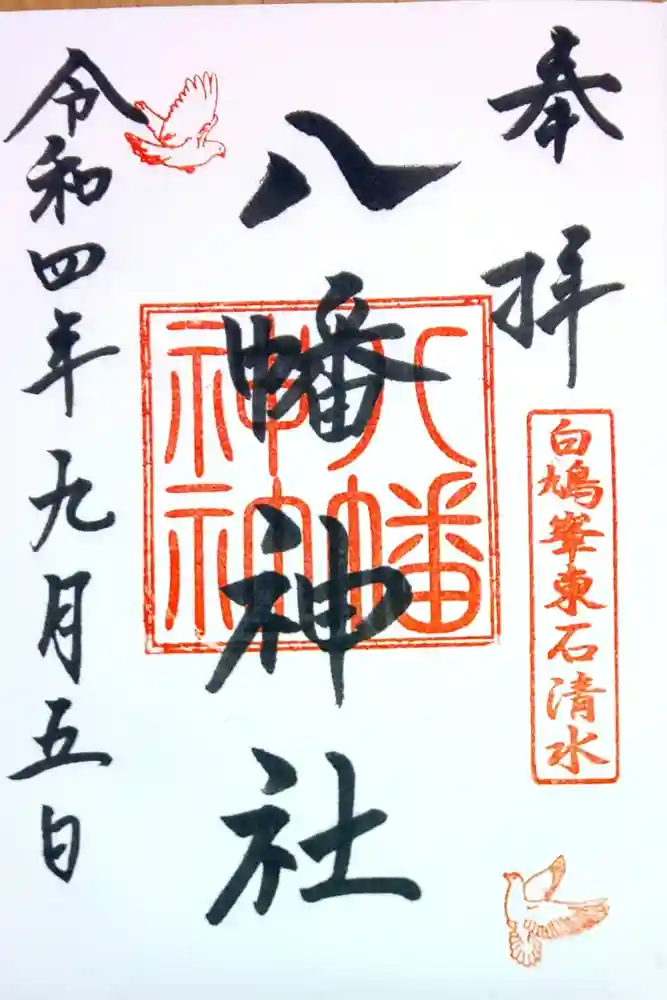 奉拝
白鳩峯東石清水
八幡神社
八幡
神神
令和四年九月五日